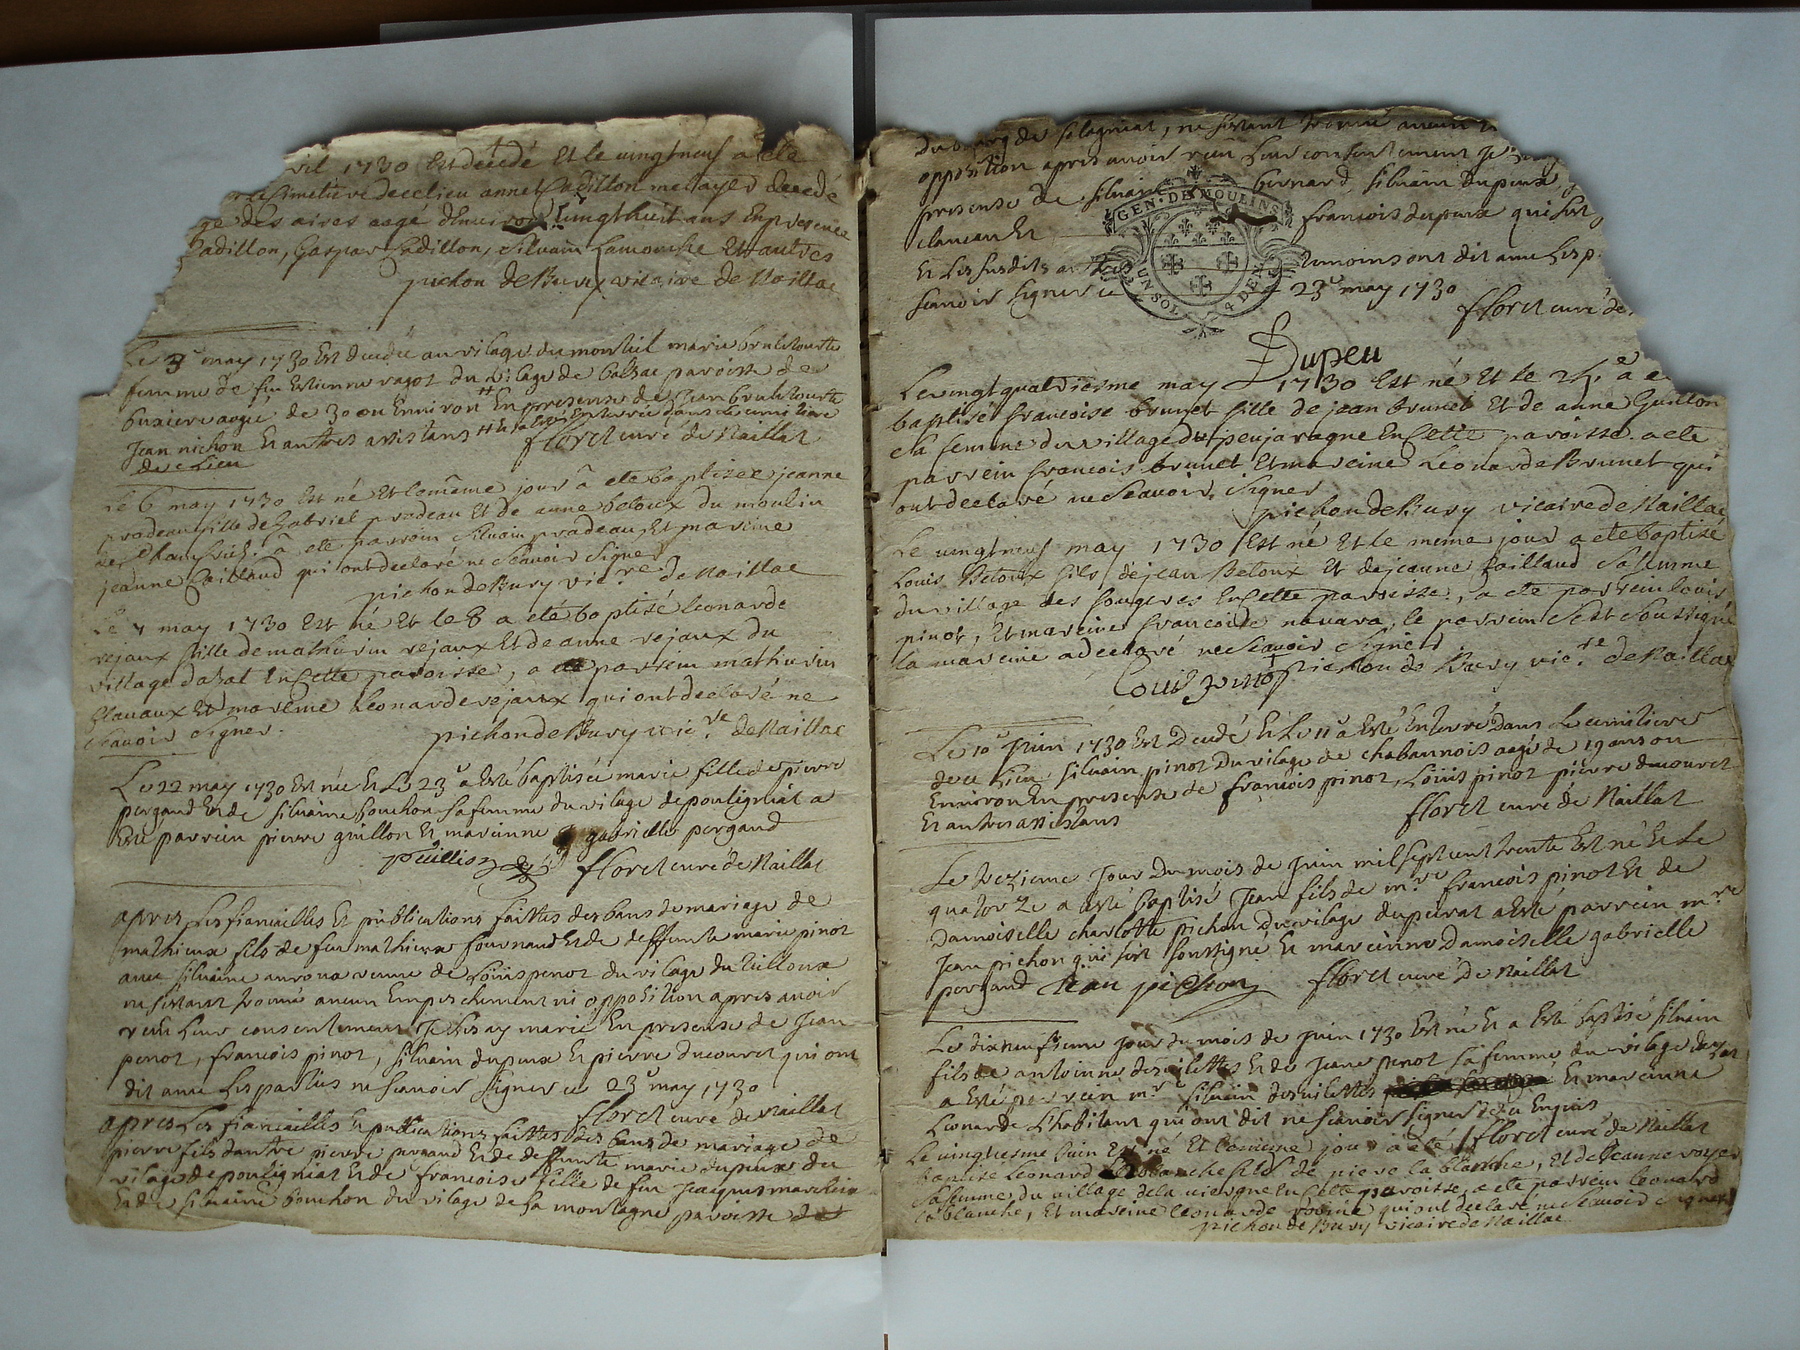 vil 1730 Est decédé Et le vingtneuf a ete
simetiere de ce lieu annet Cadillon metayer decedé
des aires aagé d'environ vingthuit ans En presence
Cadillon, Gaspar Cadillon, silvain Lamouche Et autres
pichon de Bury vicaire de Naillac
Le 3e may 1730 Est decedée au vilage du monteil marie bruletourte
femme de feu Estienne ragot du vilage de balzac paroisse de
buxiere aagée de 30 ou Environ En presense de Jean bruletourte
Jean nichon Et autres assistans Et a este Enterrée dans le cemitiere
de ce Lieu floret curé de Naillat
Le 6 may 1730 Est né Et le même jour â ete baptisée jeanne
pradeau fille de Gabriel pradeau Et de anne betoux du moulin
de â ete parrein silvain pradeau Et mareine
jeanne Taillaud qui ont declaré ne scavoir signer
pichon de Bury vic.re de Naillac
Le 7 may 1730 Est né Et le 8 a eté baptisé leonarde
rejaux fille de mathurin rejaux Et de anne rejaux du
village dazat En cette paroisse, a ete parrein mathurin
Clavaux Et mareine Leonarde rejaux qui ont declaré ne
scavoir signer.
pichon de Bury vic.re de Naillac
Le 22 may 1730 Est née Et Le 23e a Esté baptisée marie fille de pierre
pergaud Et de silvaine bouchon sa femme du vilage de pouligniat a
Esté parrein pierre guillon Et mareinne gabrielle pergaud
floret curé de Naillat
apres Les fiancailles Et publications faittes des bans de mariage de
mathieux fils de feu mathieux fournaud Et de deffunte marie pinot
avec silvaine veuve de Loüis penot du vilage du
ne sestant trouvé aucun Empeschement ni opposition apres avoir
receu Leur consentement Je Les ay marié En presense de Jean
penot, francois pinot, silvain dupeux Et pierre ducouret qui ont
dit avec Les parties ne scavoir signer ce 23e may 1730
floret curé de Naillat
apres Les fiancailles Et publications faittes des bans de mariage de
pierre fils dautre pierre pergaud Et de deffunte marie dupeux du
vilage de pouligniat Et de francoise fille de feu Jacques
Et de silvaine bouchon du vilage de La montagne paroisse de
du bourg de silagniat, ne sestant trouvé aucun
opposition apres avoir receu Leur consentement Je
presense de silvain bernard, silvain dupeux
clancau Et francois dupeux qui sest
Et Les susdits temoins ont dit avec Les p
scavoir signer ce 23e may 1730
floret curé de
GEN. DE MOULINS
UN SOL 4 DEN
Dupeu
Le vingt quatriesme may 1730 Est né Et le 24.e a e
baptisée francoise brunet fille de jean brunet Et de anne Guillon
sa femme du village du peujaragne En Cette paroisse. a ete
parrein francois brunet Et mareine Leonarde Brunet qui
ont declaré ne scavoir signer
pichon de Bury vicaire de Naillac
Le vingt neuf may 1730 Est né Et le meme jour a ete baptisé
Louis Betoux fils de jean Betoux Et de jeanne Taillaud sa femme
du village des fougeres En cette paroisse, a ete parrein louis
pinot, Et mareine francoise navara, le parrein s'est soussigné
la mareine a declaré ne scavoir signer
Louis pinot pichon de Bury vic.re de Naillac
Le 10e Juin 1730 Est Decedé Et Le 11e a Esté Enterré Dans Le cemitiere
de ce Lieu silvain pinot du vilage de chabannois aagé de 19 ans ou
Environ En presense de françois pinot, Loüis pinot pierre ducouret
Et autres assistans floret curé de Naillat
Le trezieme Jour Du mois de Juin mil sept cent trente Est né Et Le
quatorze a esté baptisé Jean fils de m.re françois pinot Et de
Damoiselle charlotte pichon du vilage dupeirat a Esté parrein m.re
Jean pichon qui sest soussigné Et mareinne Damoiselle gabrielle
pergaud Jean pichon floret curé de Naillat
Le dixneufvieme jour du mois de Juin 1730 Est né Et a Esté baptisé silvain
fils de antoinne desvilettes Et de Jeane penot sa femme du vilage dazat
a Esté parrein m.re silvain desvilettes Et mareinne
Leonarde Lhabitant qui ont dit ne scavoir signer de ce Enquis
floret curé de Naillat
Le vingtiesme Juin Est né Et le meme jour a eté
baptisé Leonard La blanche fils de piere La blanche, Et de Jeanne voyer
sa femme, du village de la vierogne En cette paroisse, a ete parrein leonard
la blanche, Et mareine leonarde qui ont declaré ne scavoir signer
pichon de Bury vicaire de Naillac